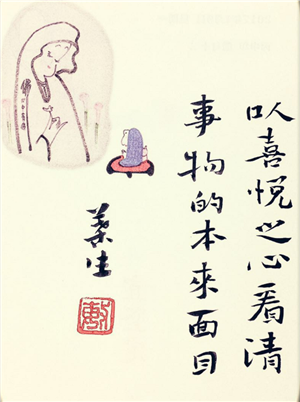 以喜悦之心看清
事物的本來面目